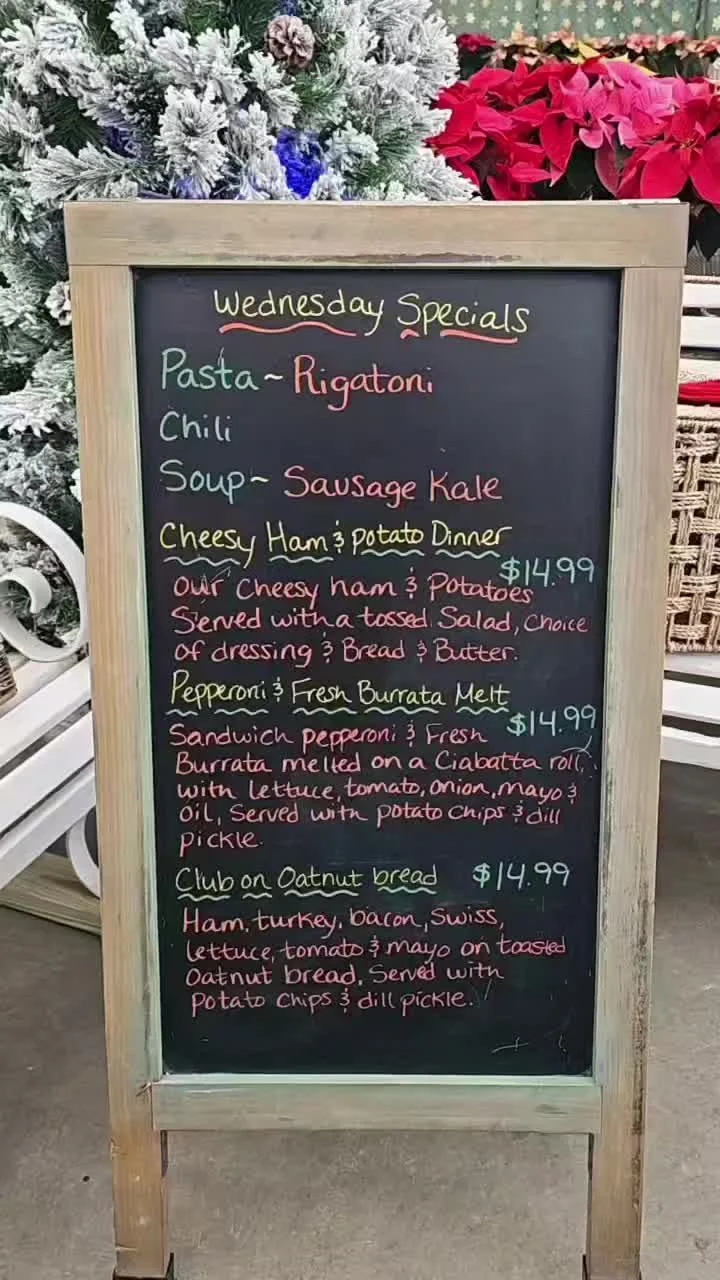 Wednesday Specials
Pasta~ Rigatoni
Chili
Soup~ Sausage Kale
Cheesy Ham & Potato Dinner
$14.99
Our Cheesy ham & Potatoes
Served with a tossed Salad, Choice
of dressing & Bread & Butter.
Pepperoni & Fresh Burrata Melt
$14.99
Sandwich pepperoni & Fresh
Burrata melted on a Ciabatta roll,
with lettuce, tomato, onion, mayo &
oil, Served with potato chips & dill
pickle.
Club on Oatnut bread $14.99
Ham, turkey, bacon, Swiss,
lettuce, tomato & mayo on toasted
Oatnut bread, Served with
Potato Chips & dill pickle.